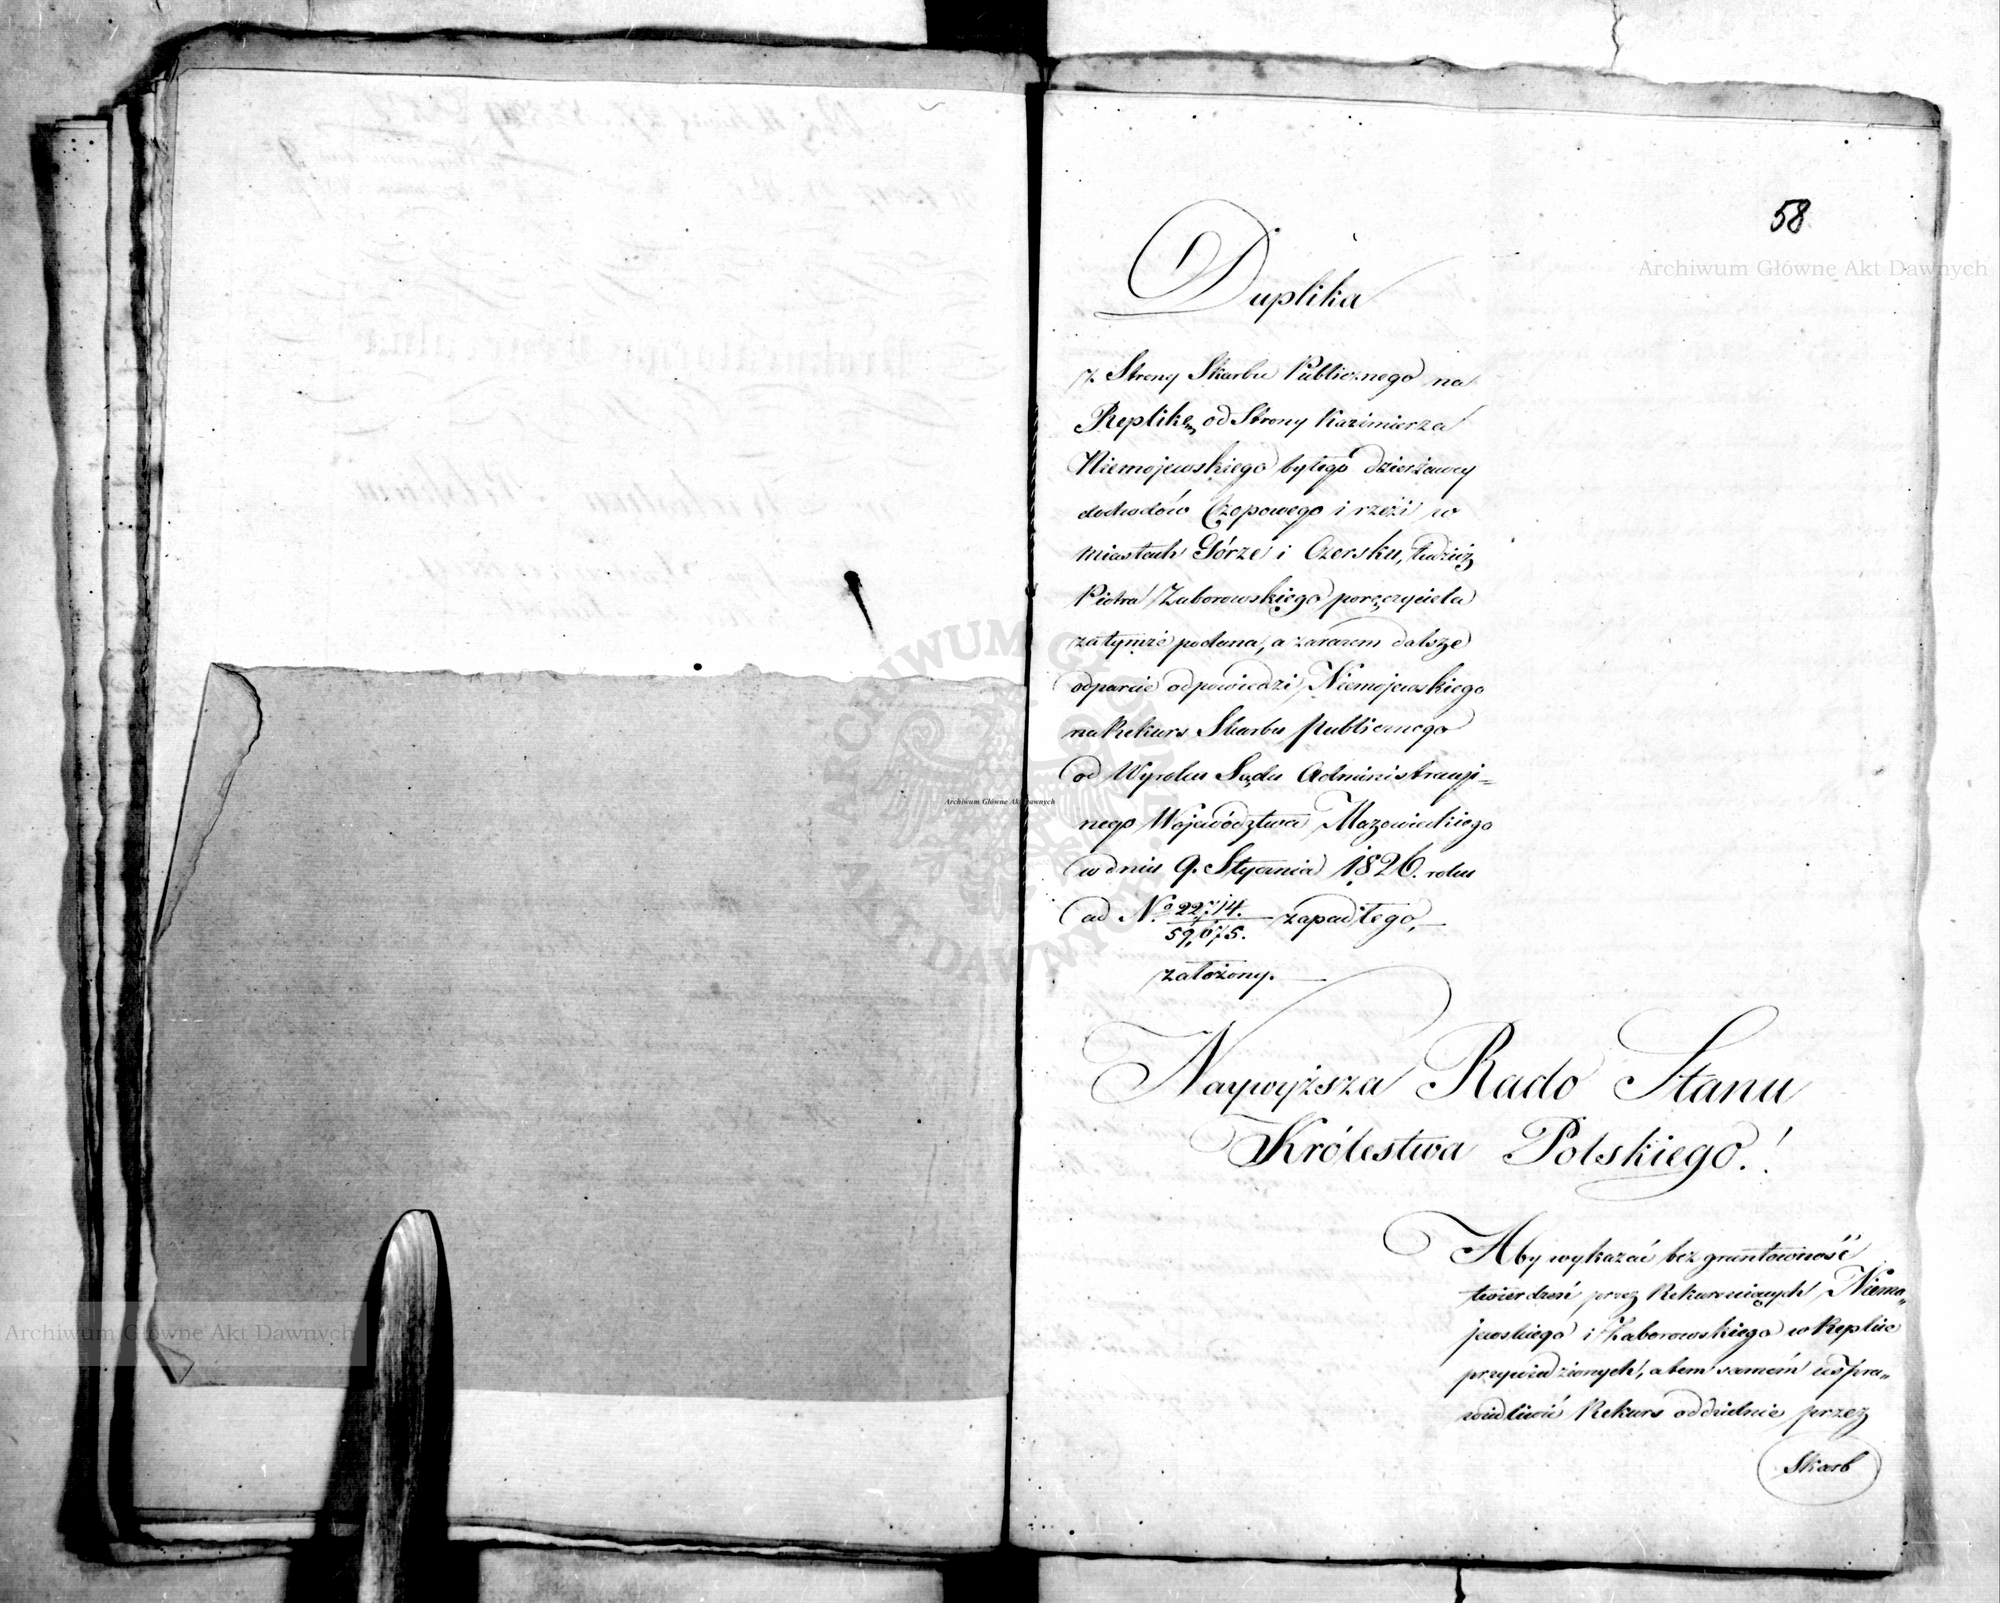 58
Duplika
z Strony Skarbu Publicznego na
Replikę od Strony Kazimierza
Niemojewskiego byłego dzierżawcy
dochodów Czopowego i rzezi w
miastach Górze i Czersku, tudzież
Piotra Zaborowskiego poręczyciela
za tymże podana, a zarazem dalsze
odparcie odpowiedzi Niemojewskiego
na Rekurs Skarbu Publicznego
od Wyroku Sądu Administracyi=
nego Województwa Mazowieckiego
w dniu 9. Stycznia 1826. roku
ad No 22,714. / 59,675. zapadłego,
założony.
Naywyższa Rado Stanu
Królestwa Polskiego.!
Aby wykazać bezgruntowność
twierdzeń przez Rekursuiących Niemo„
jewskiego i Zaborowskiego w Replice
przywiedzionych, a tem samem uspra„
wiedliwić Rekurs oddzielnie przez
Skarb
Archiwum Główne Akt Dawnych
Archiwum Główne Akt Dawnych
Archiwum Główne Akt Dawnych
ARCHIWUM GŁÓWNE AKT DAWNYCH